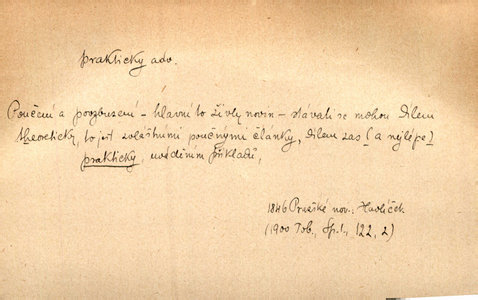 prakticky adv.
Poučení a povzbuzení – hlavní to živly novin – stávati se mohou dílem
theoreticky, to jest zvláštními poučnými články, dílem zas (a nejlépe)
prakticky, uváděním příkladů,
1846 Pražské nov., Havlíček.
(1900 Tob., Sp. 1., 122, 2)